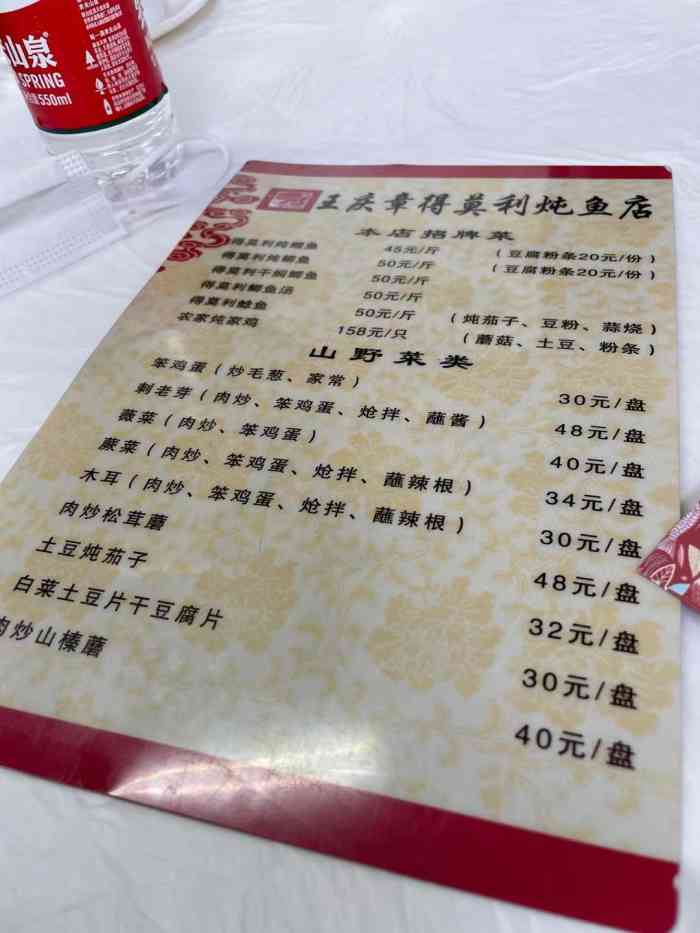 山泉
SPRING
550ml
王庆章得莫利炖鱼店
本店招牌菜
得莫利炖鲤鱼 45元/斤 (豆腐粉条20元/份)
得莫利炖鲫鱼 50元/斤 (豆腐粉条20元/份)
得莫利干焖鲫鱼 50元/斤
得莫利鲫鱼汤 50元/斤
得莫利鲶鱼 50元/斤 (炖茄子、豆粉、蒜烧)
农家炖家鸡 158元/只 (蘑菇、土豆、粉条)
山野菜类
笨鸡蛋(炒毛葱、家常) 30元/盘
刺老芽(肉炒、笨鸡蛋、炝拌、蘸酱) 48元/盘
薇菜(肉炒、笨鸡蛋) 40元/盘
蕨菜(肉炒、笨鸡蛋、炝拌、蘸辣根) 34元/盘
木耳(肉炒、笨鸡蛋、炝拌、蘸辣根) 30元/盘
肉炒松茸蘑 48元/盘
土豆炖茄子 32元/盘
白菜土豆片干豆腐片 30元/盘
肉炒山榛蘑 40元/盘